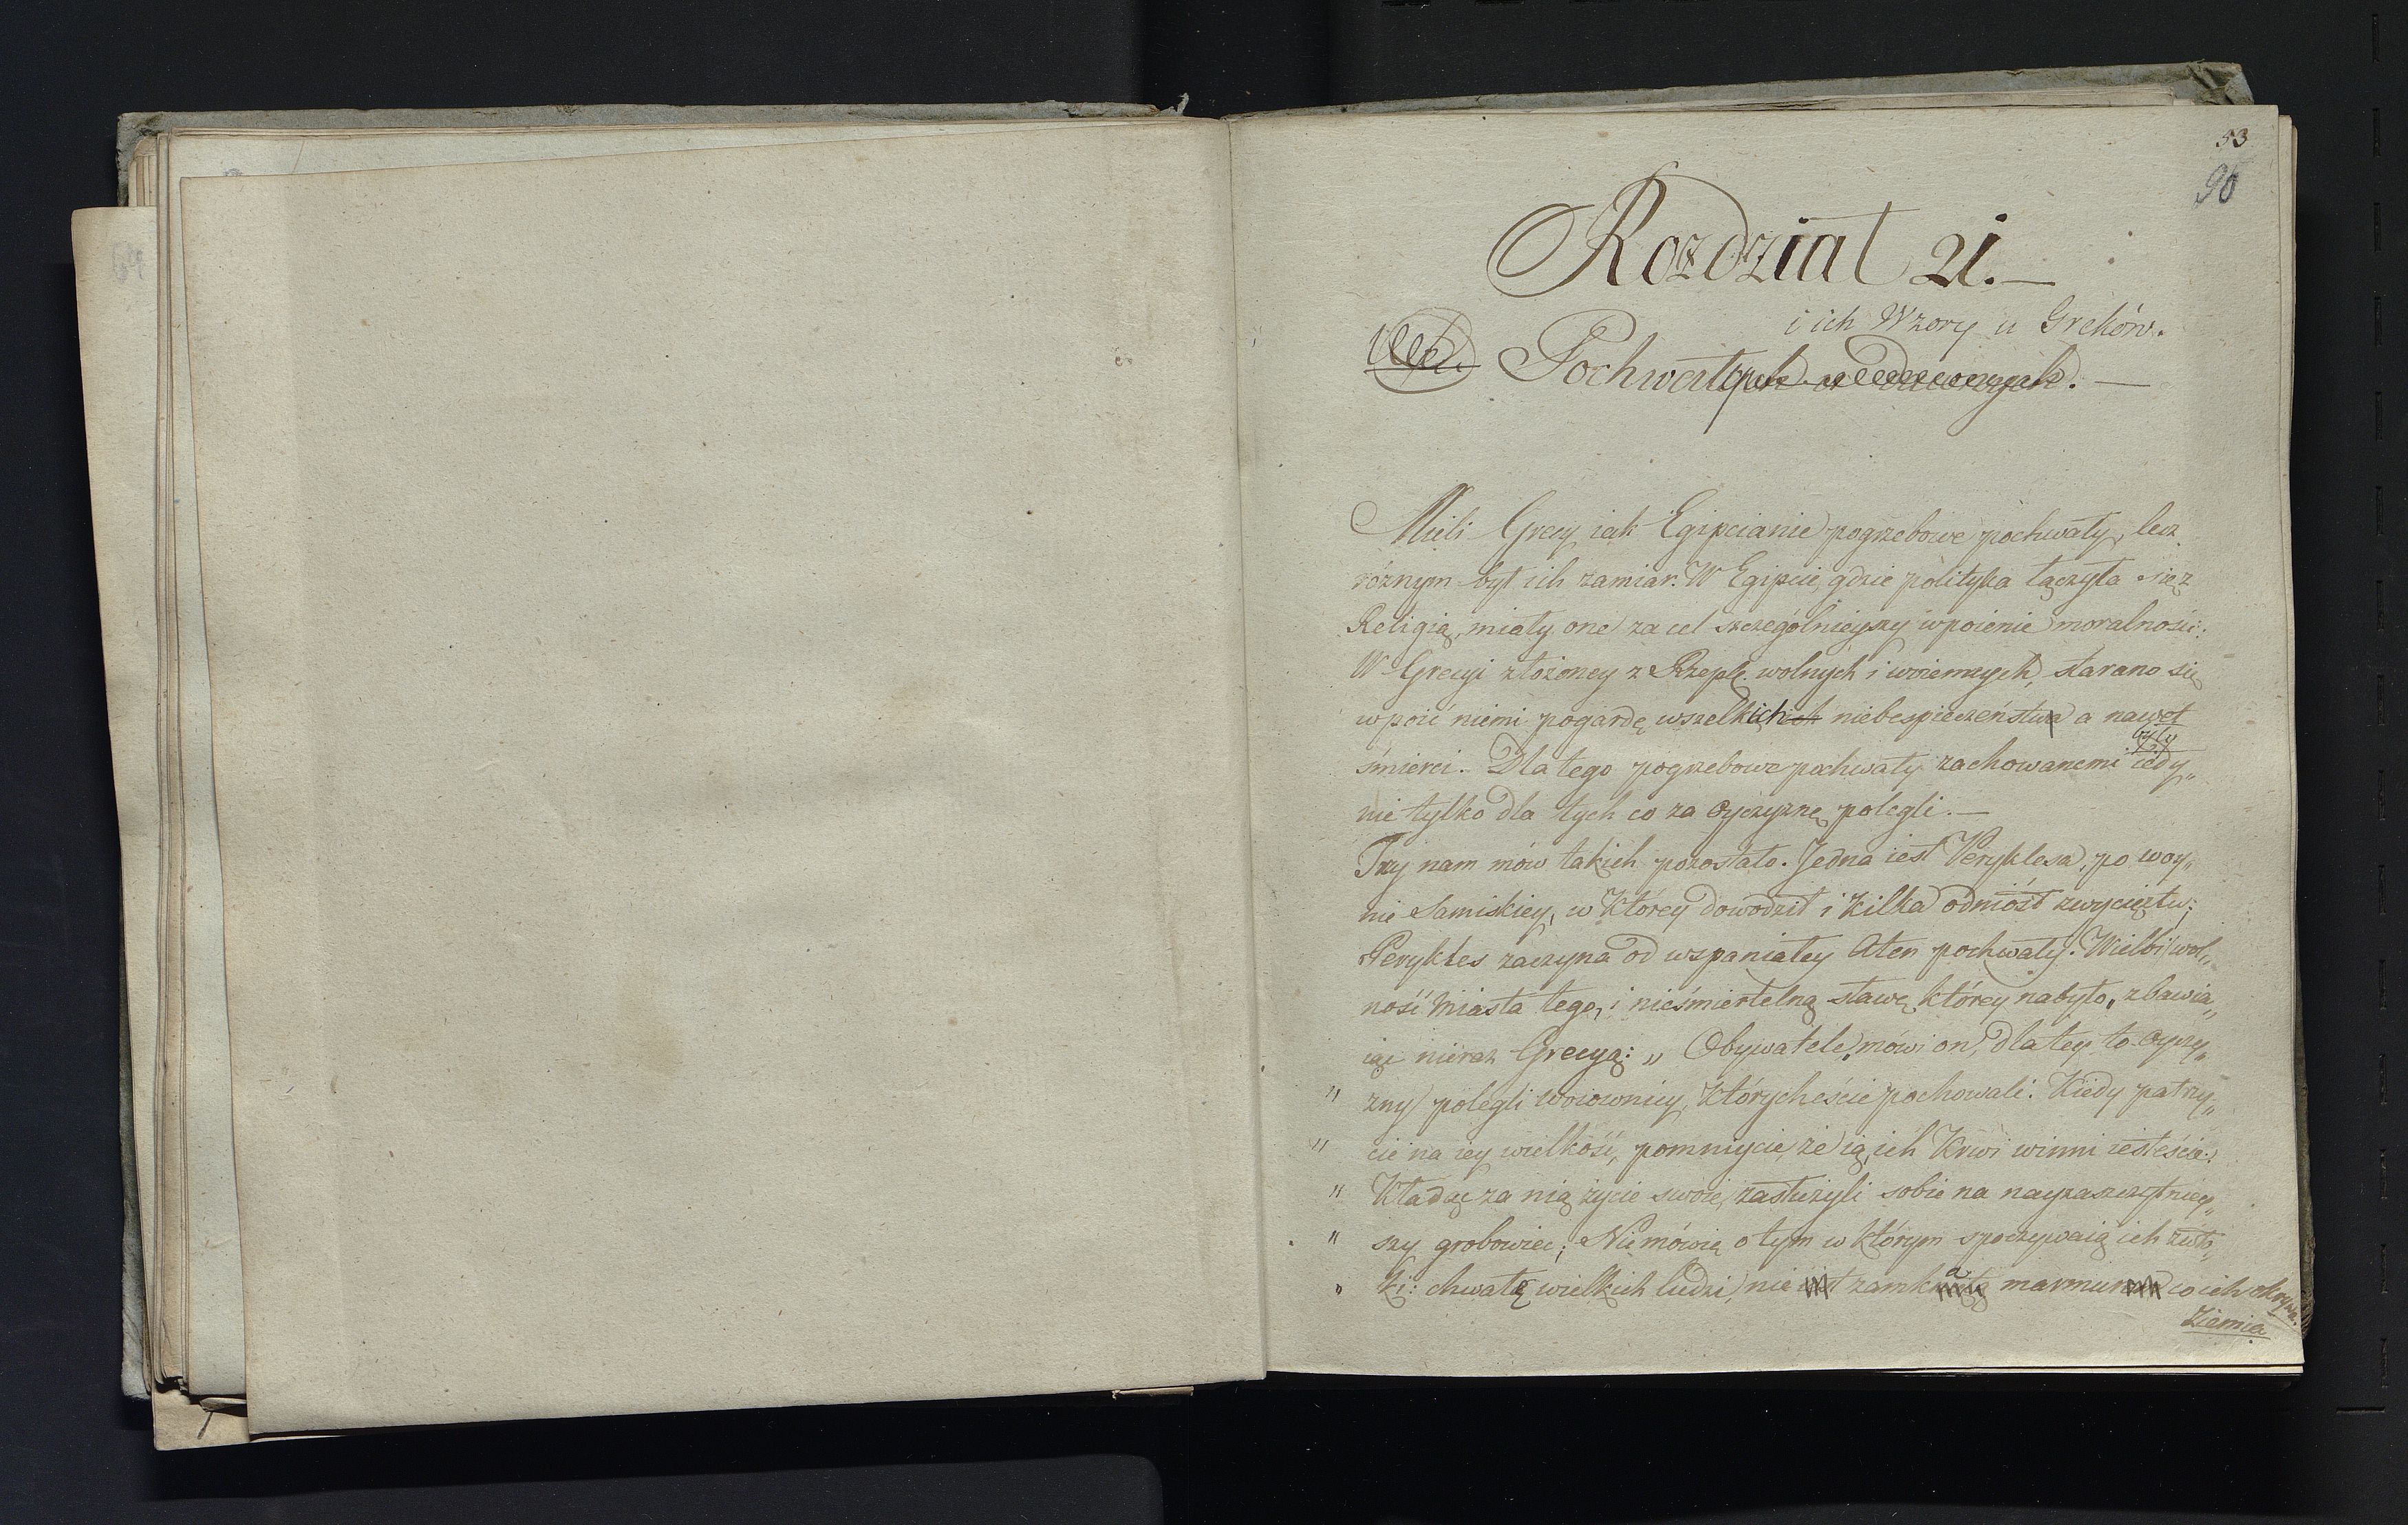 53
96
Rozdział 21.—
i ich Wzory u Greków.
Pochwały
Mieli Grecy iak Egipcianie pogrzebowe pochwały, lecz
różnym był ich zamiar. W Egipcie, gdzie polityka łączyła się z
Religią, miały one za cel szczególnieyszy wpoienie moralności:
W Grecyi złożoney z Rzeplt. wolnych i woiennych, starano się
wpoić niemi pogardę wszelkich niebespieczeństw a nawet
śmierci. Dla tego pogrzebowe pochwały zachowanemi były iedy„
nie tylko dla tych co za oyczyznę polegli.—
Trzy nam mów takich pozostało. Jedna iest Peryklesa, po woy„
nie Samiskiey, w którey dowodził i kilka odniósł zwycięztw;
Perykles zaczyna od wspaniałey Aten pochwały: Wielbi wol„
ność Miasta tego, i nieśmiertelną sławę, którey nabyło, zbawia„
iąc nieraz Grecyą: „ Obywatele, mówi on, dla tey to oyczy„
„ zny polegli woiownicy, którycheście pochowali: Kiedy patrzy„
„ cie na iey wielkość, pomniycie, że ią ich Krwi winni iesteście:
„ Kładąc za nią życie swoie, zasłużyli sobie na nayzaszczytniey„
„ szy grobowiec; Nie mówię o tym w którym spoczywaią ich zwło„
„ ki: chwałę wielkich ludzi, nie zamka marmur co ich okrywa.
Ziemia